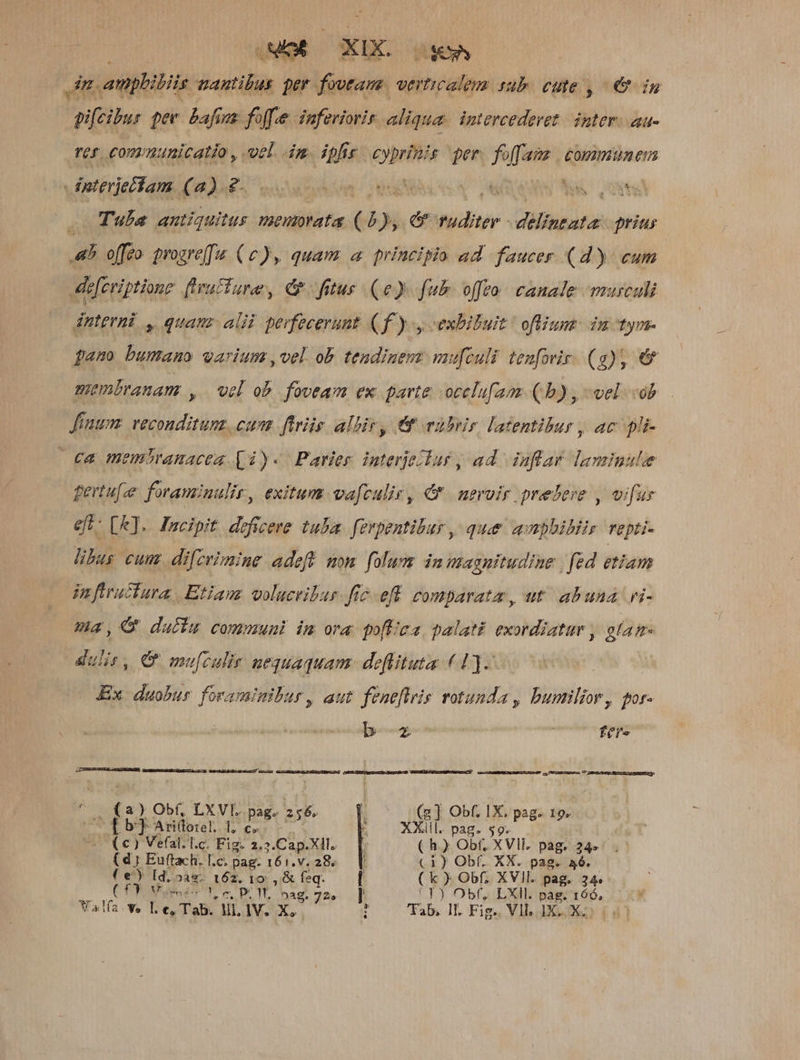 XIX.
in amphibiis nantibus per foveam verticalem sub cute, & in
piscibus per basim fossæ inferioris aliqua intercederet inter au-
res communicatio, vel in ipsis cyprinis per fossam communem
interjectam (a) ?
Tuba antiquitus memorata (b), & ruditer delineata prius
ab osseo progressu (c), quam a principio ad fauces (d) cum
descriptione structuræ, & situs (e) sub osseo canale musculi
interni, quam alii perfecerunt (f), exhibuit ostium in tym-
pano humano varium, vel ob tendinem musculi tensoris (g), &
membranam, vel ob foveam ex parte occlusam (h), vel ob
sinum reconditum cum striis albis, & rubris latentibus, ac pli-
ca membranacea (i). Paries interjectus, ad instar laminulæ
pertusæ foraminulis, exitum vasculis, & nervis præbere, visus
est [k]. Incipit deficere tuba serpentibus, quæ amphibiis repti-
libus cum discrimine adest non solum in magnitudine sed etiam
instructura. Etiam volucribus sic est comparata, ut ab una ri-
ma, & ductu communi in ora postica palati exordiatur, glan-
dulis, & musculis nequaquam destituta (l].
Ex duobus foraminibus, aut fenestris rotunda, humilior, pos-
b 2 tere
(a) Obs. LXVI. pag. 256.
[b] Aristotel. l. c.
(c) Vesal. l.c. Fig. 2.3. Cap. XII.
(d) Eustach. l.c. pag. 161. v. 28.
(e) Id. pag. 162. 10, & seq.
(f) l. c. P. IV. pag. 72.
Valsa v. l. c. Tab. III. IV. X.
(g] Obs. IX. pag. 19.
XXIII. pag. 59.
(h) Obs. XVII. pag. 34.
(i) Obs. XX. pag. 46.
(k) Obs. XVII. pag. 34.
(l) Obs. LXII. pag. 166.
Tab. II. Fig. VII. IX. X.